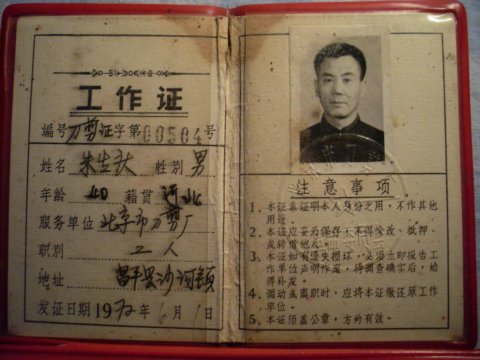 工作证
编号刀剪证字第00504号
姓名 朱生 性别 男
年龄 40 籍贯 河北
服务单位 北京市刀剪厂
职别 工人
地址 昌平县沙河镇
发证日期 1972年6月1日
注意事项
1. 本证系证明本人身份之用，不作其他
用途。
2. 本证应妥为保存，不得涂改、抵押、
或转借他人。
3. 本证如有遗失损坏，必须立即报告工
作单位声明作废，待调查确实后，始
得补发。
4. 调动或离职时，应将本证缴还原工作
单位。
5. 本证须盖公章，方为有效。